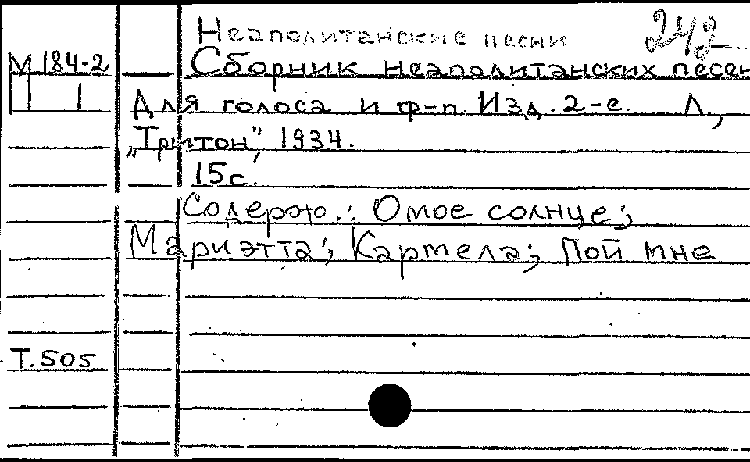 Неаполитанские песни 242
М 184-2 Сборник неаполитанских песен
1 Для голоса и ф-п. Изд. 2-е. Л.,
„Тритон", 1934.
15 с.
Содерж.: О мое солнце;
Мариэтта; Кармела; Пой мне
Т.505